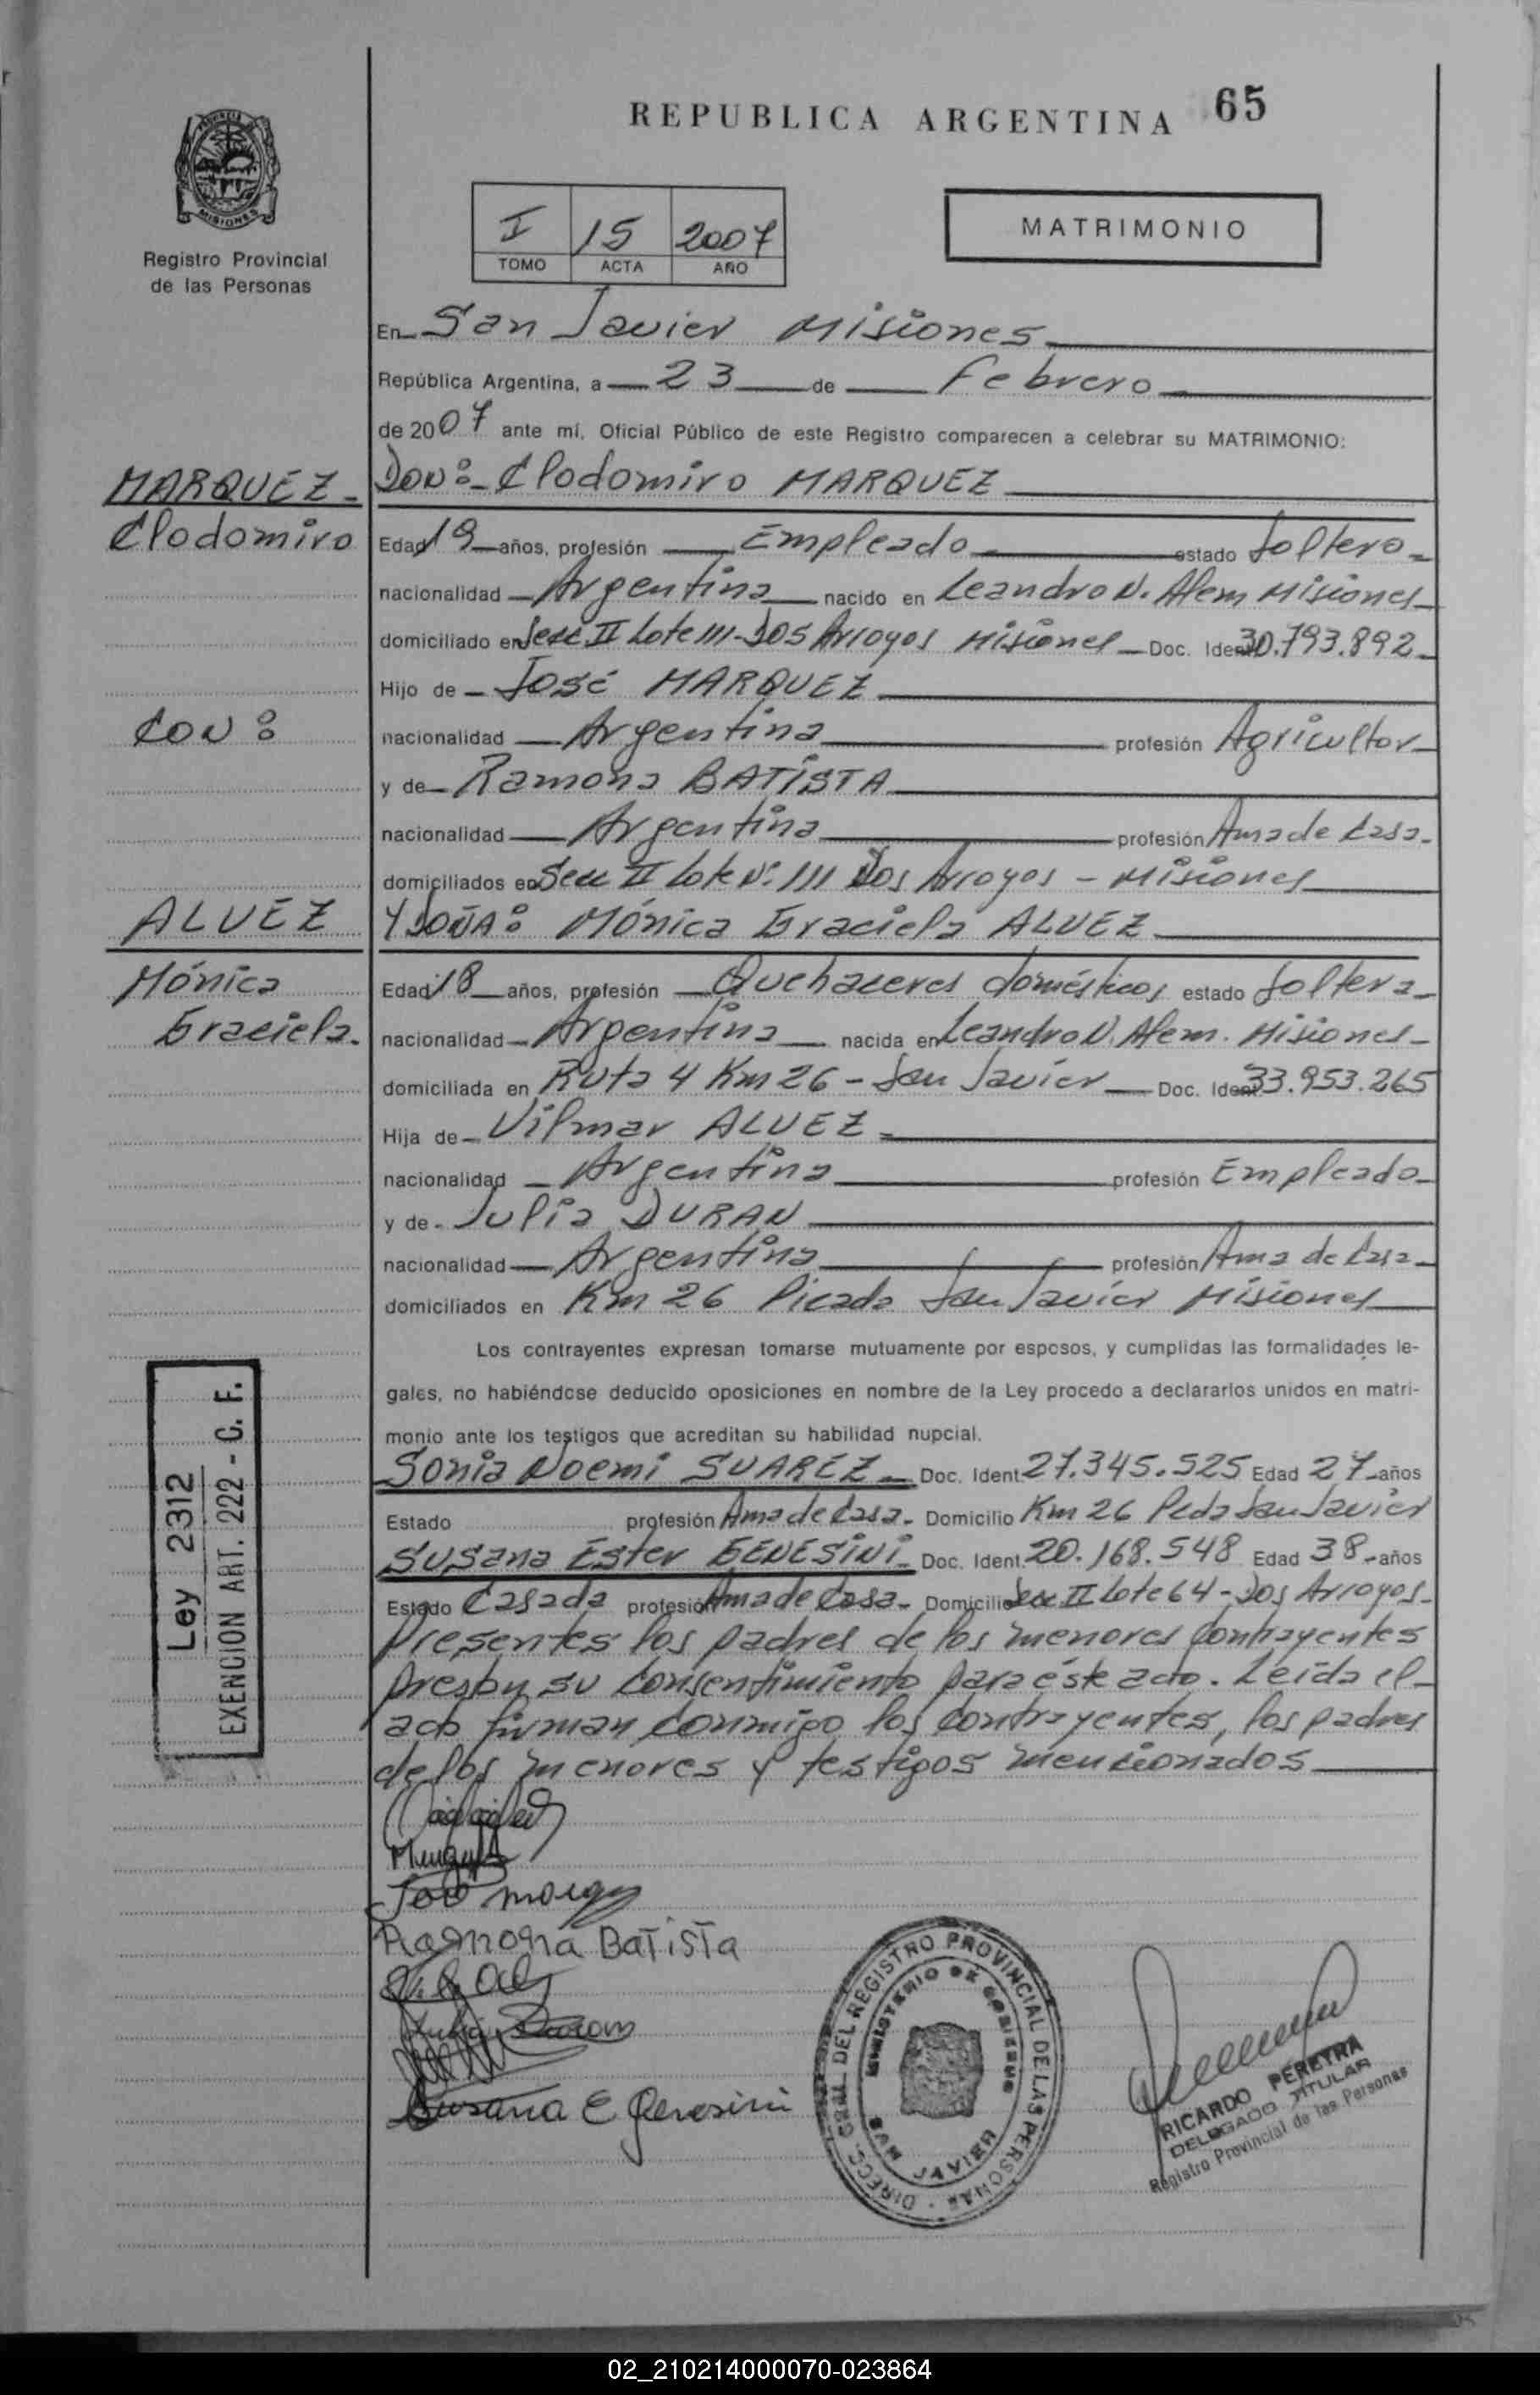 REPUBLICA ARGENTINA 65
MISIONES
Registro Provincial
de las Personas
I 15 2007
TOMO ACTA AÑO
MATRIMONIO
En San Javier Misiones
República Argentina, a 23 de Febrero
de 2007 ante mí, Oficial Público de este Registro comparecen a celebrar su MATRIMONIO:
MARQUEZ
Don: Clodomiro MARQUEZ
Clodomiro
Edad 19 años, profesión Empleado estado Soltero
nacionalidad Argentina nacido en Leandro N. Alem Misiones
domiciliado en Secc II Lote 111 Dos Arroyos Misiones Doc. Ident 30.793.892
Hijo de José MARQUEZ
CON:
nacionalidad Argentina profesión Agricultor
y de Ramona BATISTA
nacionalidad Argentina profesión Ama de Casa
domiciliados en Secc II Lote Nº 111 Dos Arroyos - Misiones
ALVEZ
Y DOÑA: Mónica Graciela ALVEZ
Mónica
Graciela.
Edad 18 años, profesión Quehaceres domésticos estado Soltera
nacionalidad Argentina nacida en Leandro N. Alem. Misiones
domiciliada en Ruta 4 Km 26 - San Javier Doc. Ident 33.953.265
Hija de Vilmar ALVEZ
nacionalidad Argentina profesión Empleado
y de Julia DURAN
nacionalidad Argentina profesión Ama de Casa
domiciliados en Km 26 Picada San Javier Misiones
Los contrayentes expresan tomarse mutuamente por esposos, y cumplidas las formalidades le-
gales, no habiéndose deducido oposiciones en nombre de la Ley procedo a declararlos unidos en matri-
monio ante los testigos que acreditan su habilidad nupcial.
Sonia Noemi SUAREZ Doc. Ident 27.345.525 Edad 27 años
Estado profesión Ama de Casa. Domicilio Km 26 Pcda San Javier
Susana Ester GENESINI Doc. Ident. 20.168.548 Edad 38 años
Estado Casada profesión Ama de Casa Domicilio Secc II Lote 64 - Dos Arroyos
Presentes los padres de los menores contrayentes
prestan su consentimiento para éste acto. Leída el
acta firman conmigo los contrayentes, los padres
de los menores y testigos mencionados
Ley 2312
EXENCION ART. 222 - C. F.
Ramona Batista
Julia Duran
Susana E Genesini
DIRECC. GRAL. DEL REGISTRO PROVINCIAL DE LAS PERSONAS
MINISTERIO DE GOBIERNO
SAN JAVIER
RICARDO PEREYRA
DELEGADO TITULAR
Registro Provincial de las Personas
02_210214000070-023864